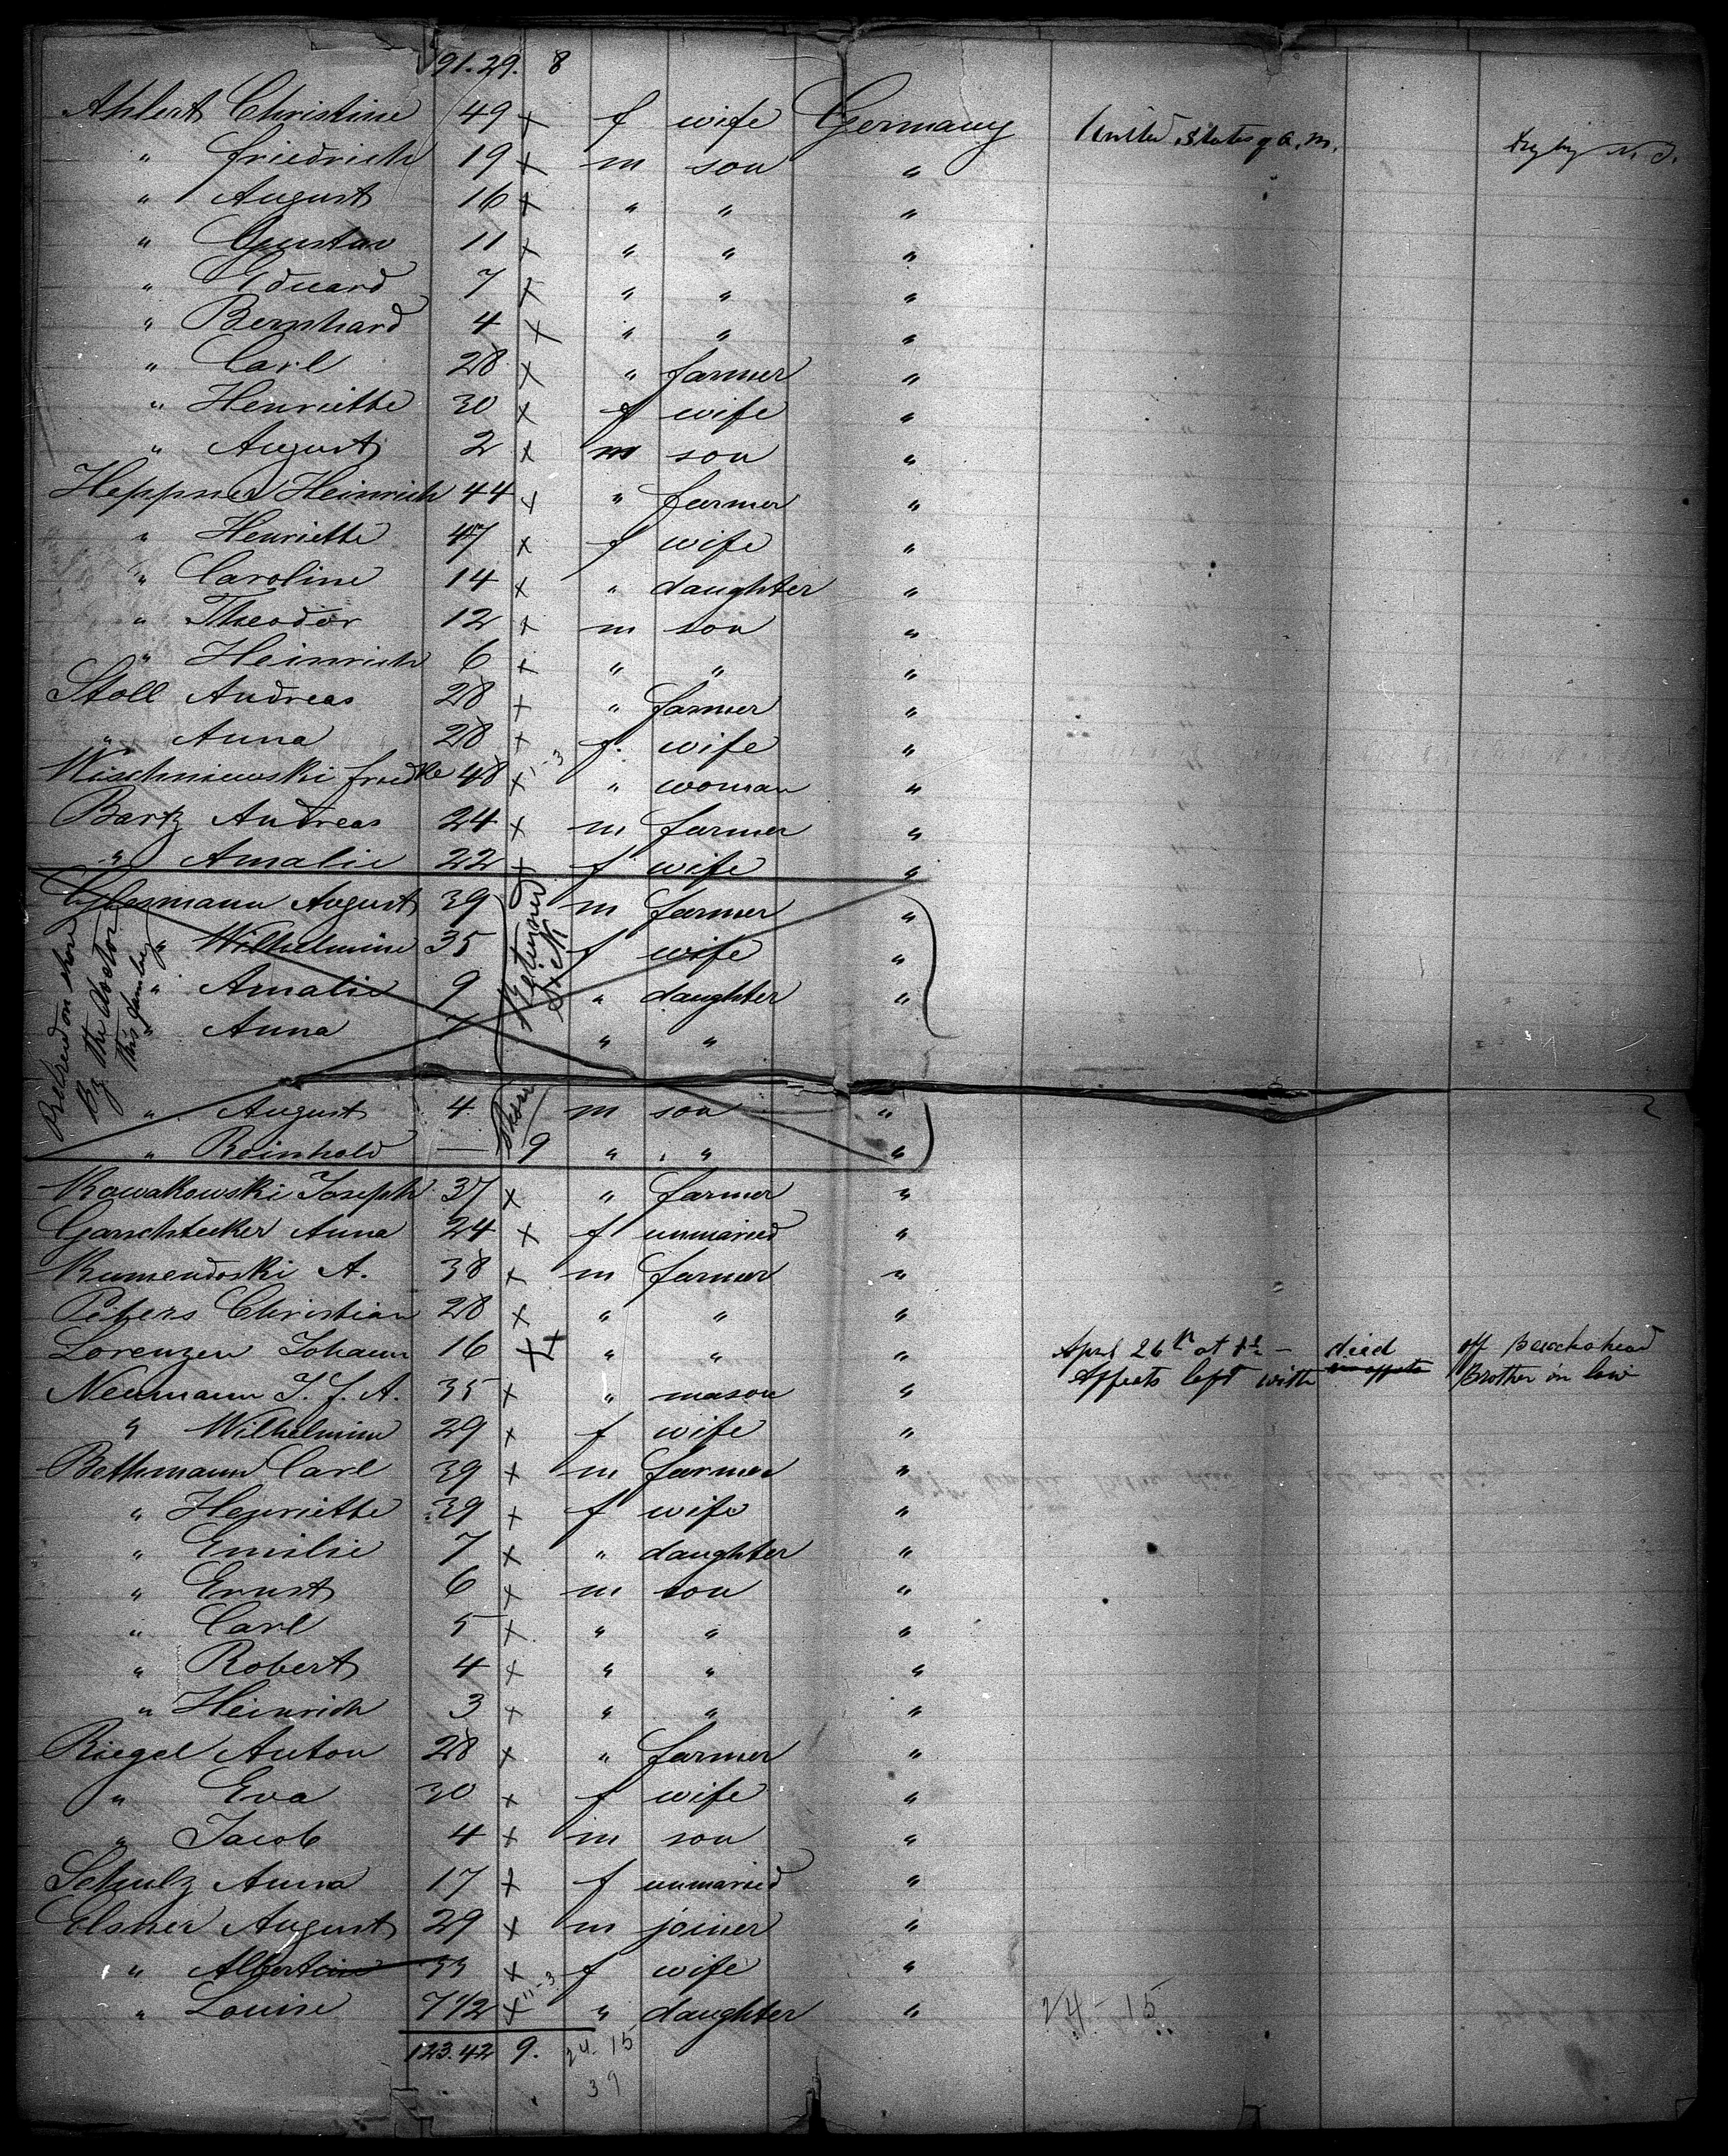 91. 29. 8
Ahlert Christine 49 x f wife Germany United States of Am.
" Friedrich 19 x m son "
" August 16 x " " "
" Gustav 11 x " " "
" Eduard 7 x " " "
" Bernhard 4 x " " "
" Carl 28 x " farmer "
" Henriette 30 x f wife "
" August 2 x m son "
Heppner Heinrich 44 x " farmer "
" Henriette 47 x f wife "
" Caroline 14 x " daughter "
" Theodor 12 x m son "
" Heinrich 6 x " " "
Stoll Andreas 28 x " farmer "
" Anna 28 x f. wife "
Wischniewski Friedke 48 x 1-3 " woman "
Bartz Andreas 24 x m farmer "
" Amalie 22 x f wife "
August 39 m farmer "
" Wilhelmine 35 f wife "
" Amalie 9 " daughter "
" Anna 7 " "
on shore
By the doctor
this family
Returned
Sick
" August 4 m son "
" Reinhold — 9 " " "
Kowakowski Joseph 37 x " farmer "
Anna 24 x f unmaried "
A. 38 x m farmer "
Peters Christian 28 x " " "
Lorenzen Johann 16 x x " " " April 26th at died off Beachohead
Neumann J. F. A. 35 x " mason " Affects left with Brother in law
" Wilhelmine 29 x f wife "
Bethmann Carl 39 x m farmer "
" Henriette 39 x f wife "
" Emilie 7 x " daughter "
" Ernst 6 x m son "
" Carl 5 x " " "
" Robert 4 x " " "
" Heinrich 3 x " " "
Riegel Anton 28 x " farmer "
" Eva 30 x f wife "
" Jacob 4 x m son "
Schulz Anna 17 x f unmaried "
Elsner August 29 x m joiner "
" Albertine 33 x f wife "
" Louise 7 1/2 x 11-3 " daughter " 24 - 15
123. 42 9. 24. 15
39